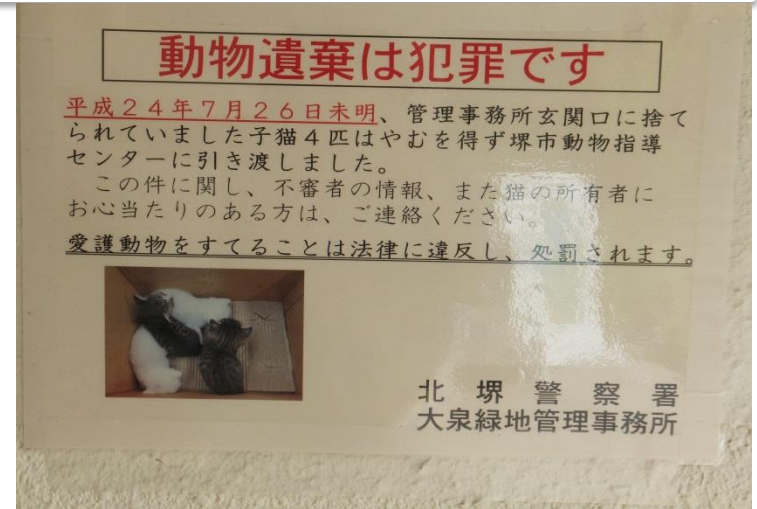 動物遺棄は犯罪です
平成２４年７月２６日未明、管理事務所玄関口に捨て
られていました子猫４匹はやむを得ず堺市動物指導
センターに引き渡しました。
　この件に関し、不審者の情報、また猫の所有者に
お心当たりのある方は、ご連絡ください。
愛護動物をすてることは法律に違反し、処罰されます。
北　堺　警　察　署
大泉緑地管理事務所